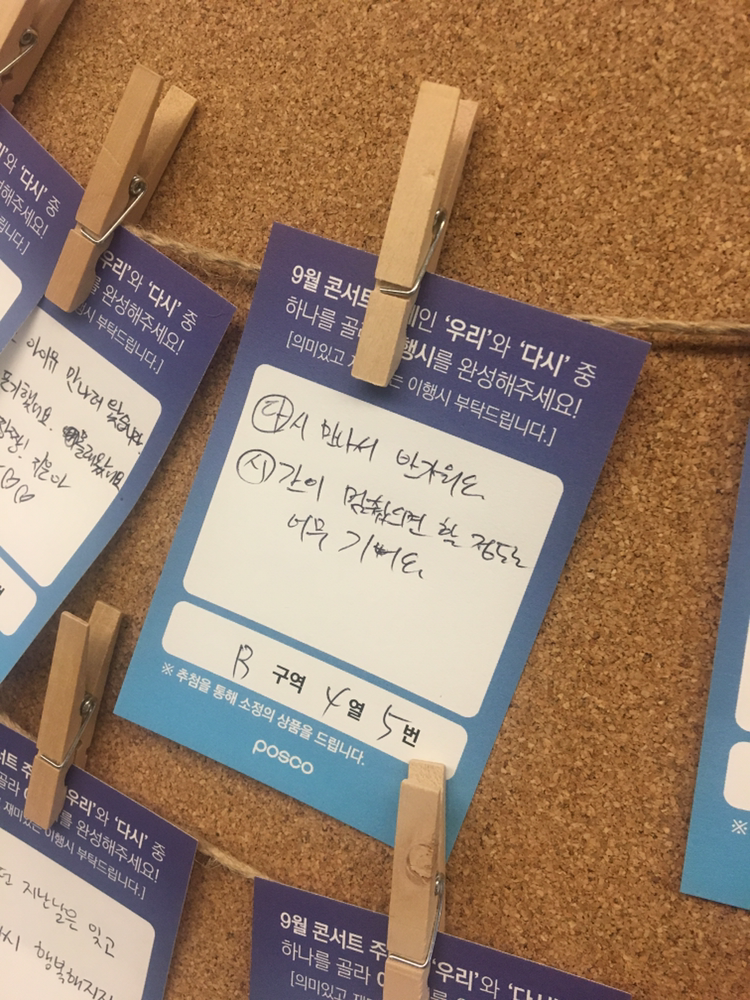 와 '다시' 중
해주세요!
립니다.]
우리'와 '다시' 중
를 완성해주세요!
시 부탁드립니다.]
아이유 만나러 왔습니다.
♡♡
9월 콘서트 제인 '우리'와 '다시' 중
하나를 골라 행시를 완성해주세요!
[의미있고 재 는 이행시 부탁드립니다.]
다시 만나서 반가워요
시간이 멈췄으면 할 정도로
너무 기뻐요.
B 구역 4 열 5 번
※ 추첨을 통해 소정의 상품을 드립니다.
posco
콘서트 주 '우리'와 '다시' 중
골라 이 를 완성해주세요!
재미있는 이행시 부탁드립니다.]
지난날은 잊고
다시 행복해지자
9월 콘서트 주 '우리'와 '다시'
하나를 골라 이 를 완성해주
[의미있고 재 이행시 부탁드
※